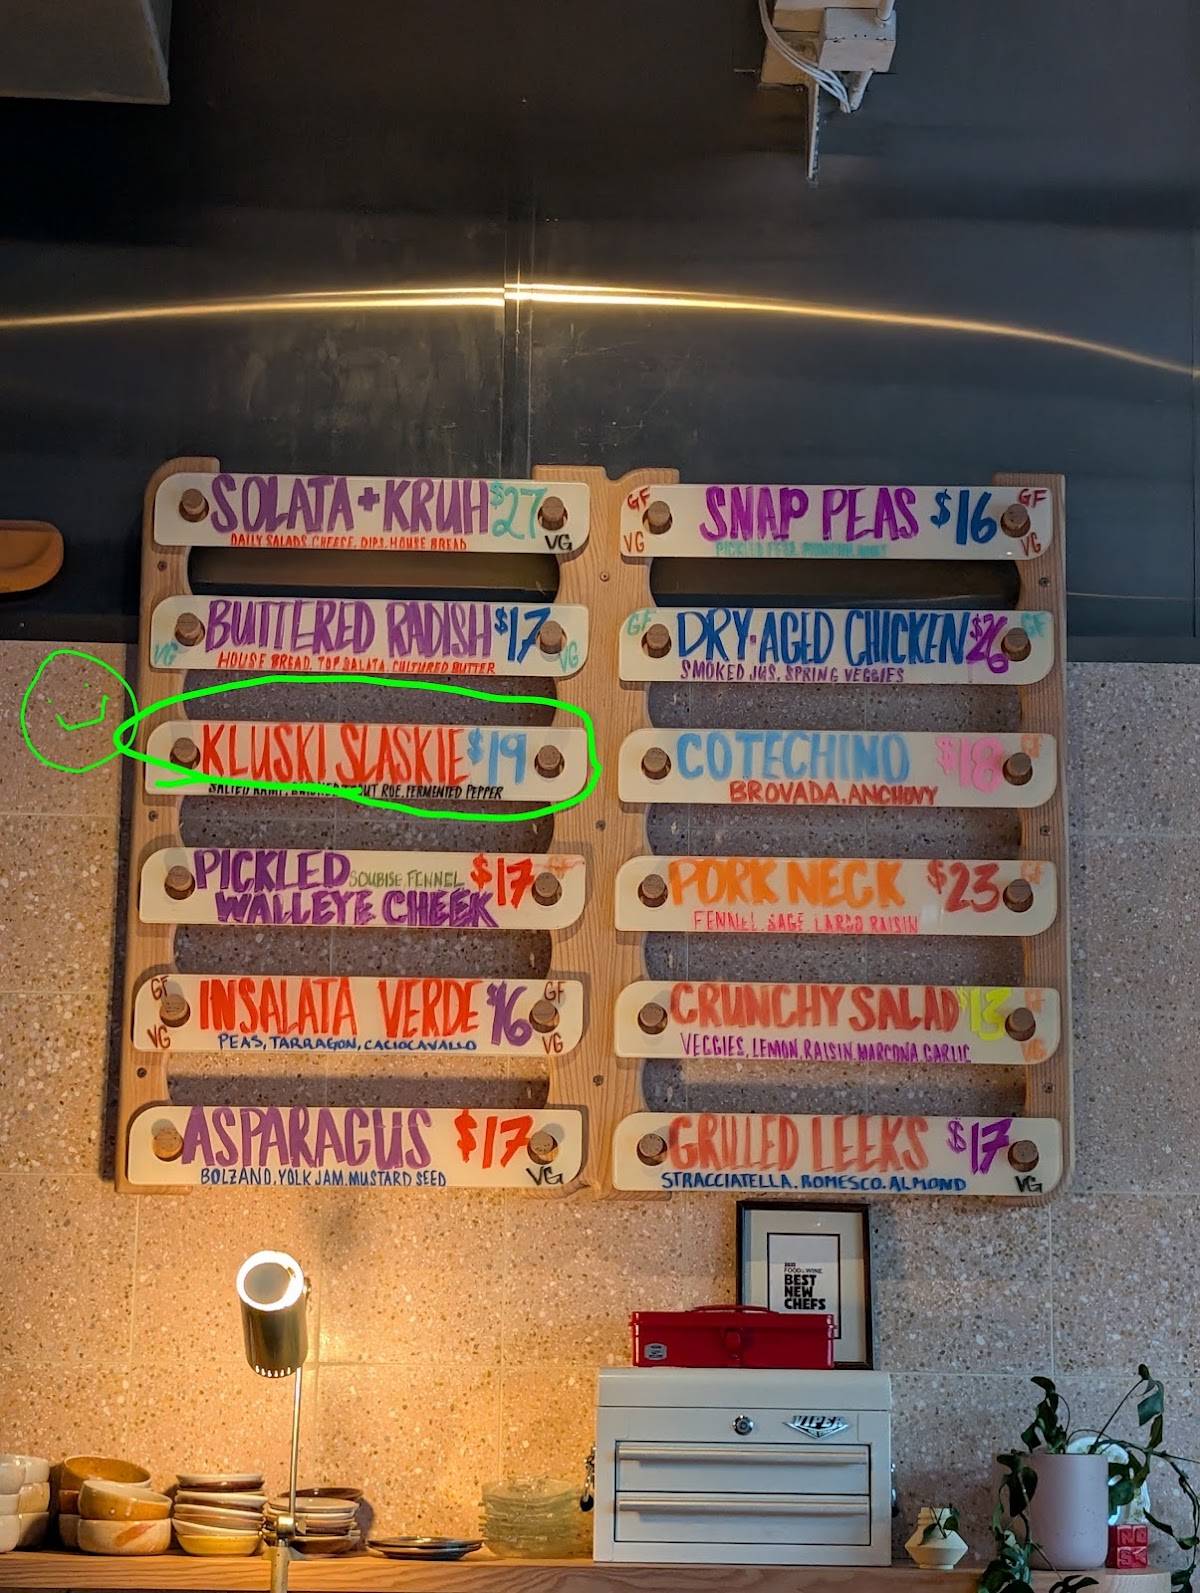 SOLATA + KRUH $27
DAILY SALADS, CHEESE, DIPS, HOUSE BREAD
VG
BUTTERED RADISH $17
VG HOUSE BREAD, TOP SALATA, CULTURED BUTTER VG
KLUSKI SLASKIE $19
SALTED ROE, FERMENTED PEPPER
PICKLED SOUBISE FENNEL $17 GF
WALLEYE CHEEK
GF INSALATA VERDE $16 GF
VG PEAS, TARRAGON, CACIOCAVALLO VG
ASPARAGUS $17
BOLZANO, YOLK JAM, MUSTARD SEED VG
GF SNAP PEAS $16 GF
VG VG
GF DRY-AGED CHICKEN $26 GF
SMOKED JUS, SPRING VEGGIES
COTECHINO $18 GF
BROVADA, ANCHOVY
PORK NECK $23 GF
FENNEL, SAGE, LARDO RAISIN
CRUNCHY SALAD $13 GF
VEGGIES, LEMON, RAISIN, MARCONA, GARLIC VG
GRILLED LEEKS $17
STRACCIATELLA, ROMESCO, ALMOND VG
FOOD & WINE
BEST
NEW
CHEFS
VIPER